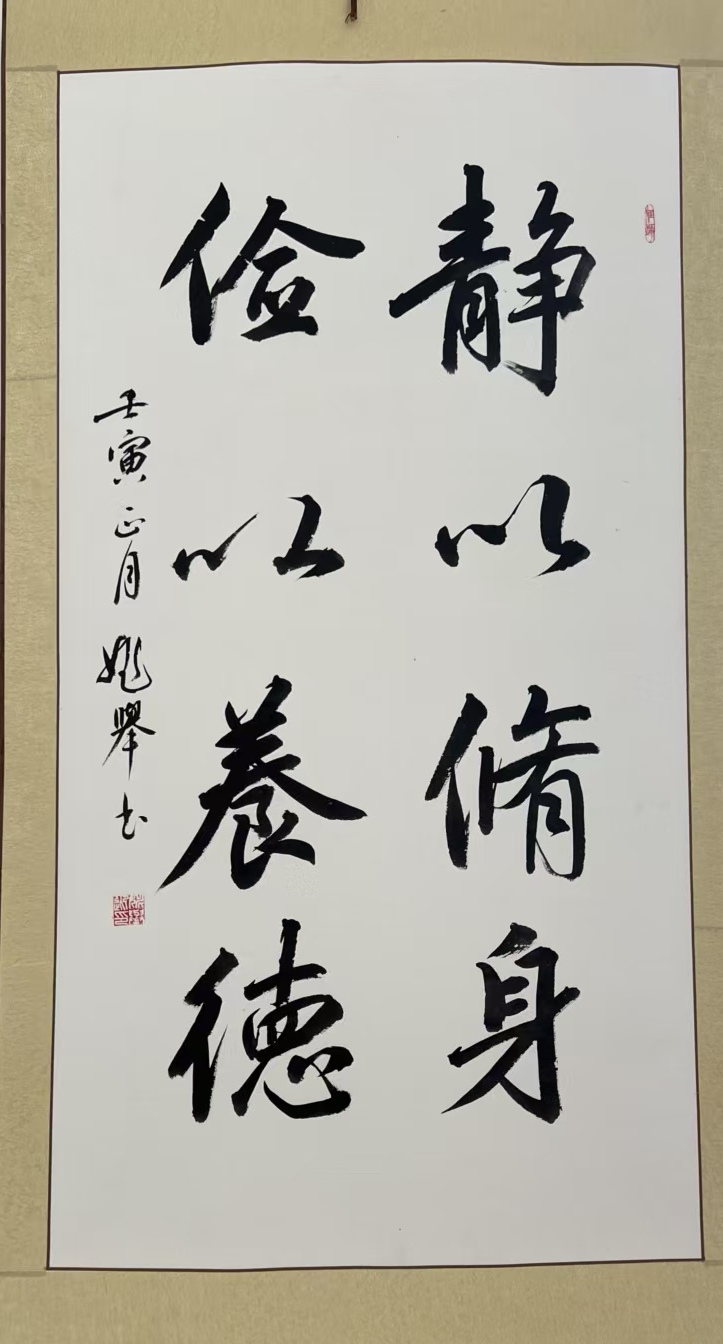 静以脩身
儉以養德
壬寅正月姚舉书